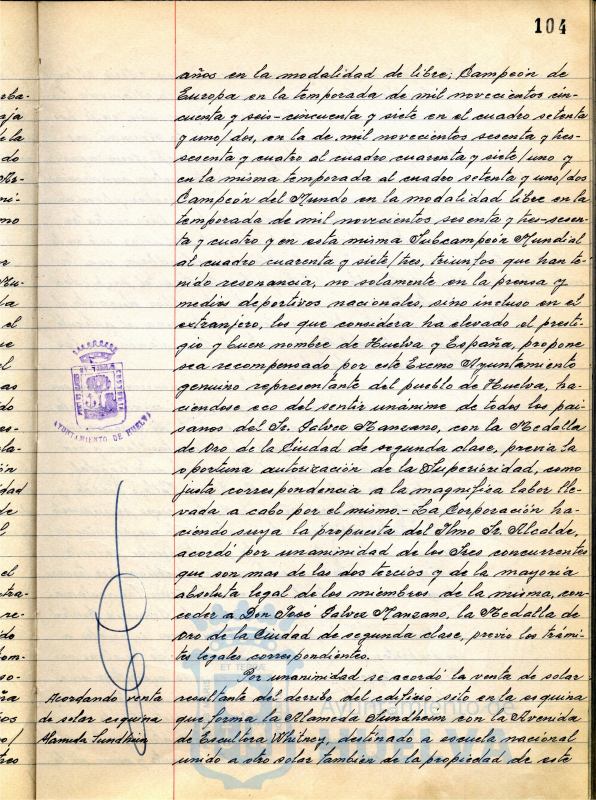 104
años en la modalidad de libre; Campeón de
Europa en la temporada de mil novecientos cin-
cuenta y seis-cincuenta y siete en el cuadro setenta
y uno/dos, en la de mil novecientos sesenta y tres-
sesenta y cuatro al cuadro cuarenta y siete/uno y
en la misma temporada al cuadro setenta y uno/dos
Campeón del Mundo en la modalidad libre en la
temporada de mil novecientos sesenta y tres-sesen-
ta y cuatro y en esta misma Subcampeón Mundial
al cuadro cuarenta y siete/tres, triunfos que han te-
nido resonancia, no solamente en la prensa y
medios deportivos nacionales, sino incluso en el
extranjero, los que considera ha elevado el presti-
gio y buen nombre de Huelva y España, propone
sea recompensado por este Excmo Ayuntamiento
genuino representante del pueblo de Huelva, ha-
ciendose eco del sentir unánime de todos los pai-
sanos del Sr. Galvez Manzano, con la Medalla
de Oro de la Ciudad de segunda clase, previa la
oportuna autorización de la Superioridad, como
justa correspondencia a la magnifica labor lle-
vada a cabo por el mismo.- La Corporación ha-
ciendo suya la propuesta del Ilmo Sr. Alcalde,
acordó por unanimidad de los Sres concurrentes
que son mas de las dos tercios y de la mayoria
absoluta legal de los miembros de la misma, con-
ceder a Don José Galvez Manzano, la Medalla de
Oro de la Ciudad de segunda clase, previo los trámi-
tes legales correspondientes.
Por unanimidad se acordó la venta de solar
resultante del derribo del edificio sito en la esquina
que forma la Alameda Sundheim con la Avenida
de Escultora Whitney, destinado a escuela nacional
unido a otro solar tambien de la propiedad de este
Acordando venta
de solar esquina
Alameda Sundhein
AYUNTAMIENTO DE HUELVA
Ayuntamiento de
HUELVA